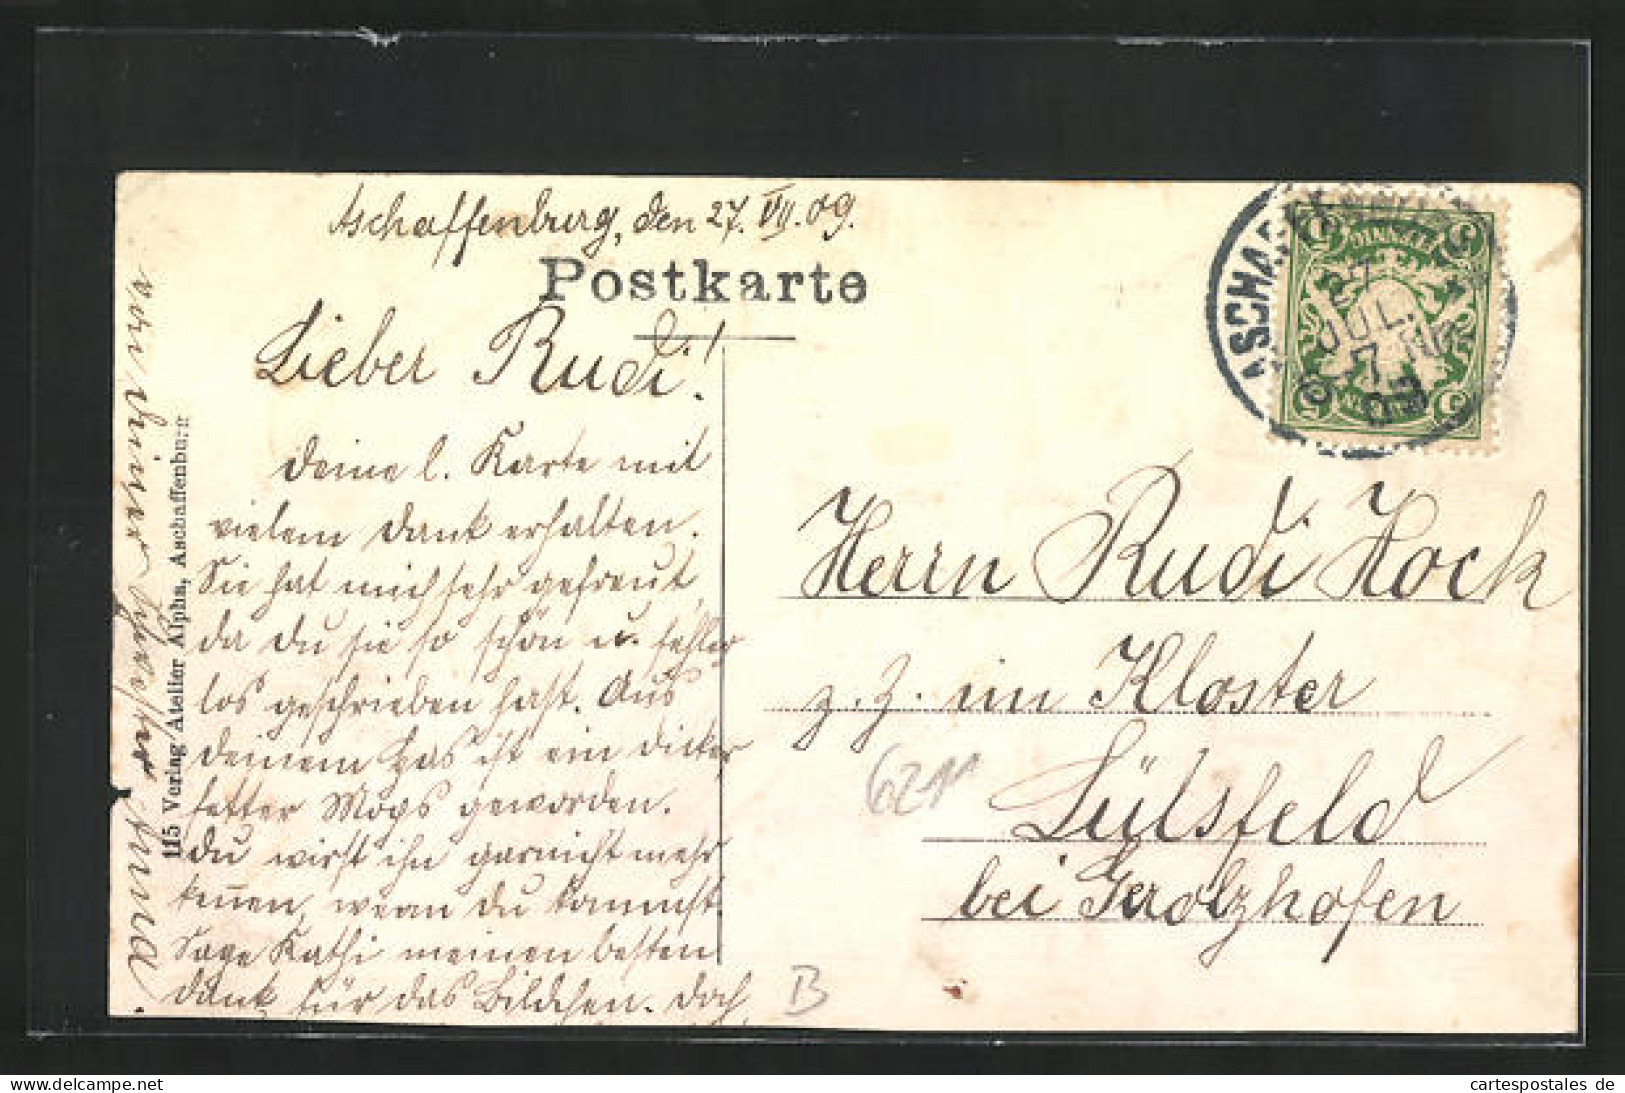 Aschaffenburg, den 27. VII. 09.
Postkarte
Lieber Rudi!
Deine l. Karte mit
vielem Dank erhalten.
Sie hat mich sehr gefreut,
da Du sie so schön u. fehler
los geschrieben hast. Aus
deinem Has ist ein dicker
fetter Mops geworden.
Du wirst ihn garnicht mehr
kennen, wenn Du kommst.
Sage Kathi meinen besten
Dank für das Bildchen. Doch
von deiner Schwester Anna
115 Verlag Atelier Alpha, Aschaffenburg
ASCHAFF
27
JUL.
7 N
09
5
Herrn Rudi Hock
z. Z. im Kloster
Lülsfeld
bei Gerolzhofen
6211
B
cartespostales de
Refreshed with THE DELCAMPE WATERMARK